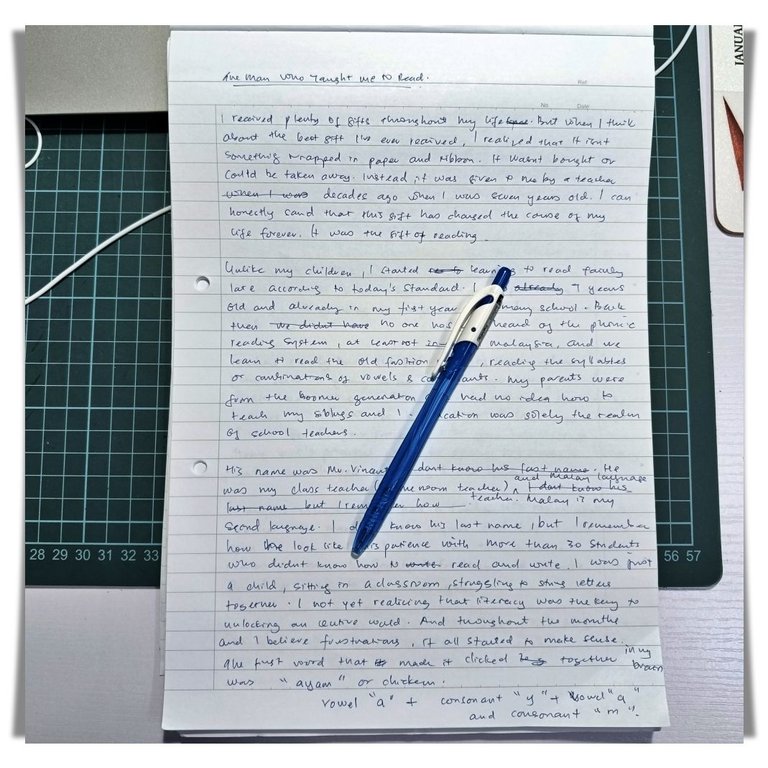 The Man Who Taught me to Read.
Ref:
No.
Date:
JANUA
I received plenty of gifts throughout my life. But when I think
about the best gift I've ever received, I realized that it isnt
something wrapped in paper and ribbon. It wasn't bought or
could be taken away. Instead it was given to me by a teacher
when I was decades ago when I was seven years old. I can
honestly said that this gift has changed the cause of my
life forever. It was the gift of reading.
Unlike my children, I started learning to read
late according to today's standard. I already 7 years
old and already in my first year school. Back
then we didnt have no one has heard of the phonic
reading system, at least not in malaysia, and we
learn to read the old fashion, reading the syllables
or combinations of vowels & My parents were
from the boomer generation had no idea how to
teach my siblings and I. was solely the realm
of school teachers.
His name was Mr. Vincent dont know his last name. He
and Malay language
was my class teacher room teacher) I dont know his
last name but I how teacher. Malay is my
second language. I know his last name, but I remember
how look like patience with more than 30 students
who didnt know how to write read and write. I was just
a child, sitting in a classroom, struggling to string letters
together. I not yet realizing that literacy was the key to
unlocking an entire world. And throughout the months
and I believe frustrations, it all started to make sense.
The first word that made it clicked together in my
brain
was "ayam" or chicken.
vowel "a" + consonant "y" + vowel "a"
and consonant "m".
28 29 30 31 32 33
56 57